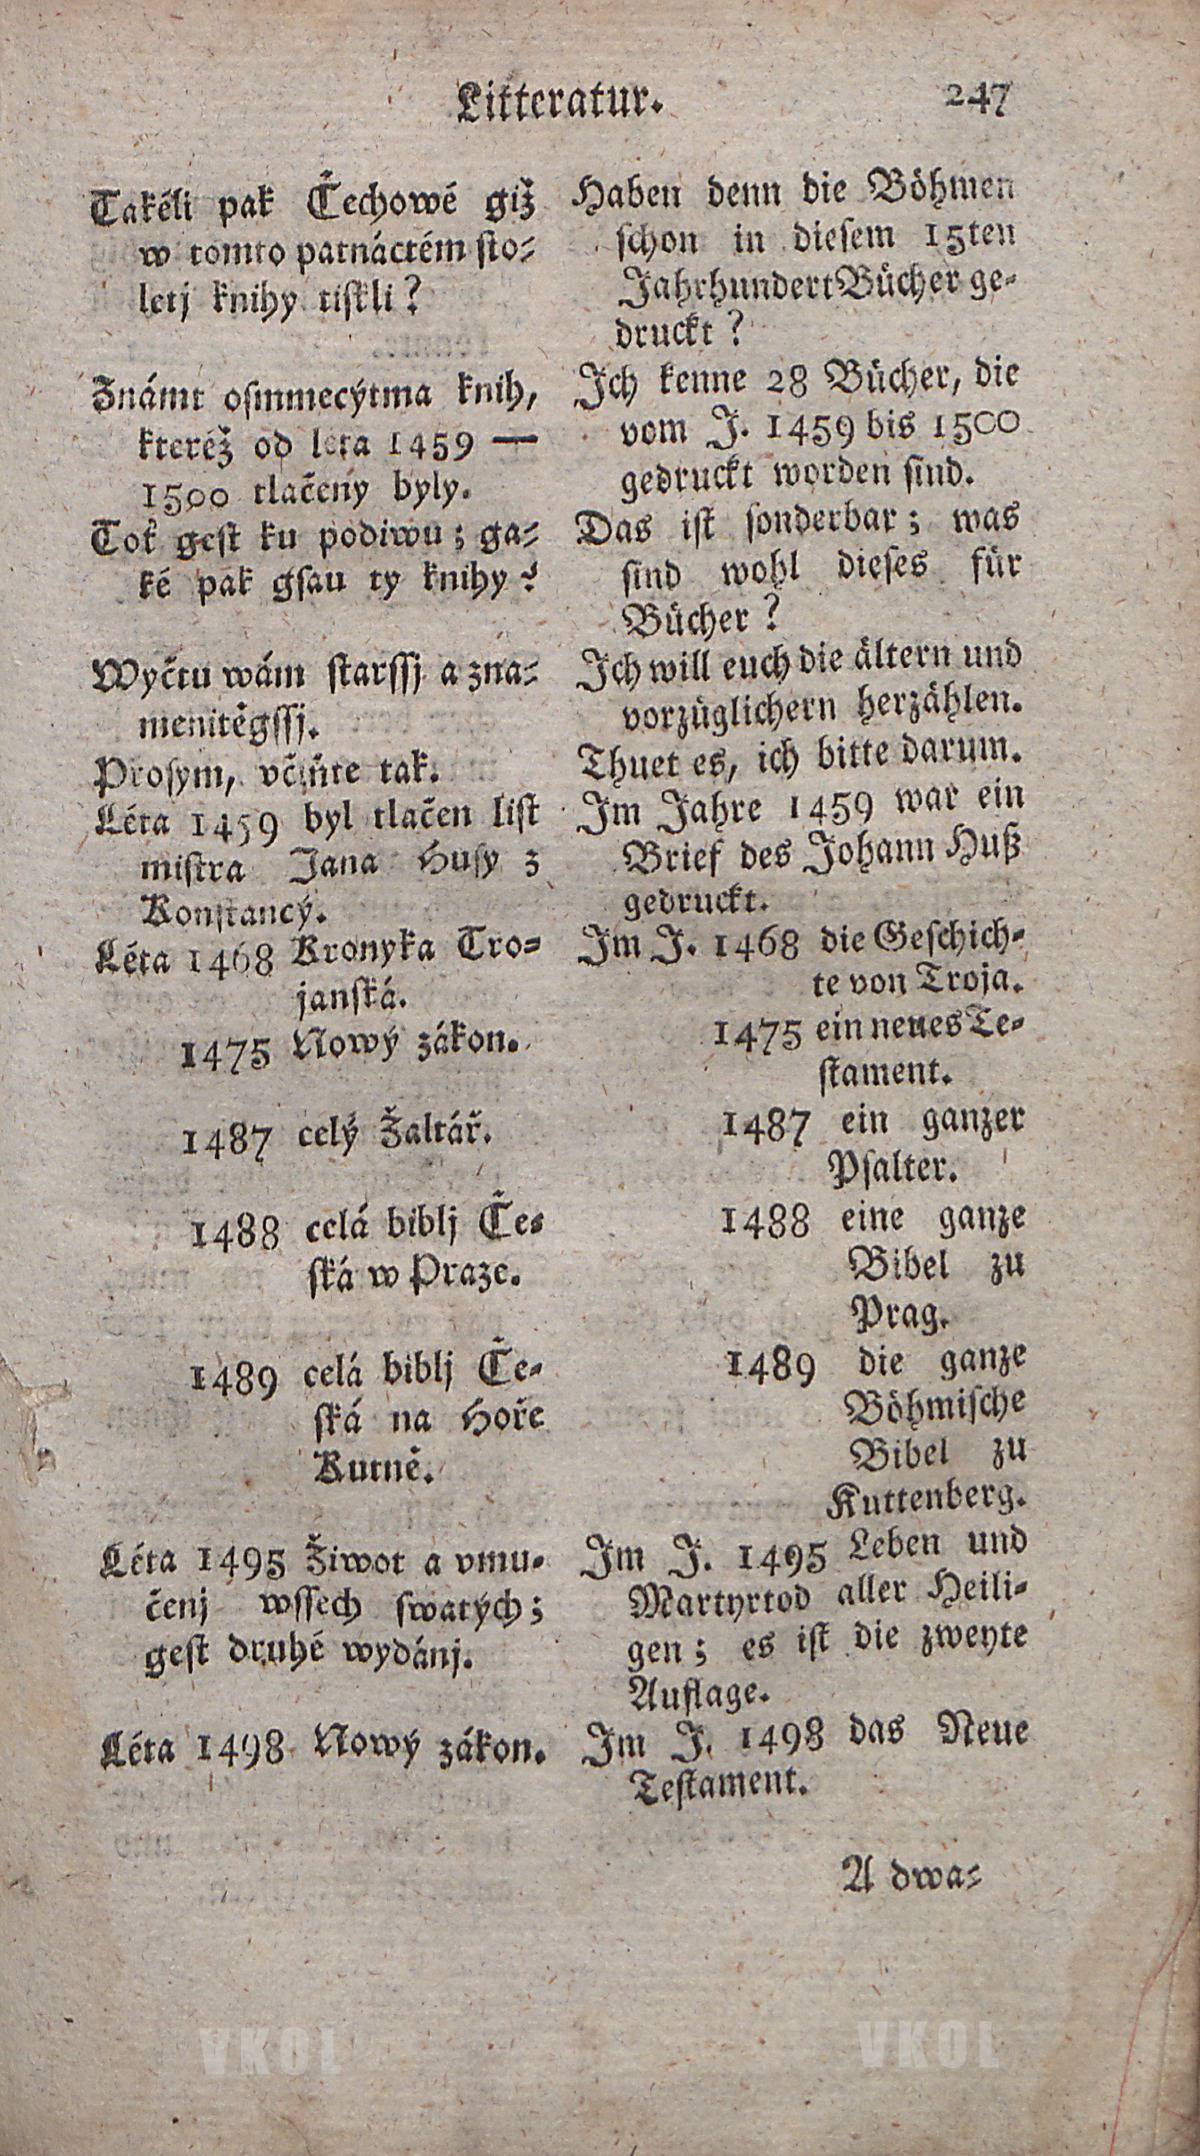 Litteratur. 247
Takéli pak Čechowé giž
w tomto patnáctém sto-
letj knihy tiskli?
Známt osmmecýtma knih,
kteréž od leta 1459 —
1500 tlačeny byly.
Toť gest ku podiwu; ga-
ké pak gsau ty knihy?
Wyčtu wám starssj a zna-
menitěgssj.
Prosym, včiňte tak.
Léta 1459 byl tlačen list
mistra Jana Husy z
Konstancý.
Léta 1468 Kronyka Tro-
janská.
1475 Nowý zákon.
1487 celý Žaltář.
1488 celá biblj Če-
ská w Praze.
1489 celá biblj Če-
ská na Hoře
Kutně.
Léta 1495 Žiwot a vmu-
čenj wssech swatých;
gest druhé wydánj.
Léta 1498 Nowý zákon.
Haben denn die Böhmen
schon in diesem 15ten
Jahrhundert Bücher ge-
druckt?
Ich kenne 28 Bücher, die
vom J. 1459 bis 1500
gedruckt worden sind.
Das ist sonderbar; was
sind wohl dieses für
Bücher?
Ich will euch die ältern und
vorzüglichern herzählen.
Thuet es, ich bitte darum.
Im Jahre 1459 war ein
Brief des Johann Huß
gedruckt.
Im J. 1468 die Geschich-
te von Troja.
1475 ein neues Te-
stament.
1487 ein ganzer
Psalter.
1488 eine ganze
Bibel zu
Prag.
1489 die ganze
Böhmische
Bibel zu
Kuttenberg.
Im J. 1495 Leben und
Martyrtod aller Heili-
gen; es ist die zweyte
Auflage.
Im J. 1498 das Neue
Testament.
A dwa-
VKOL VKOL